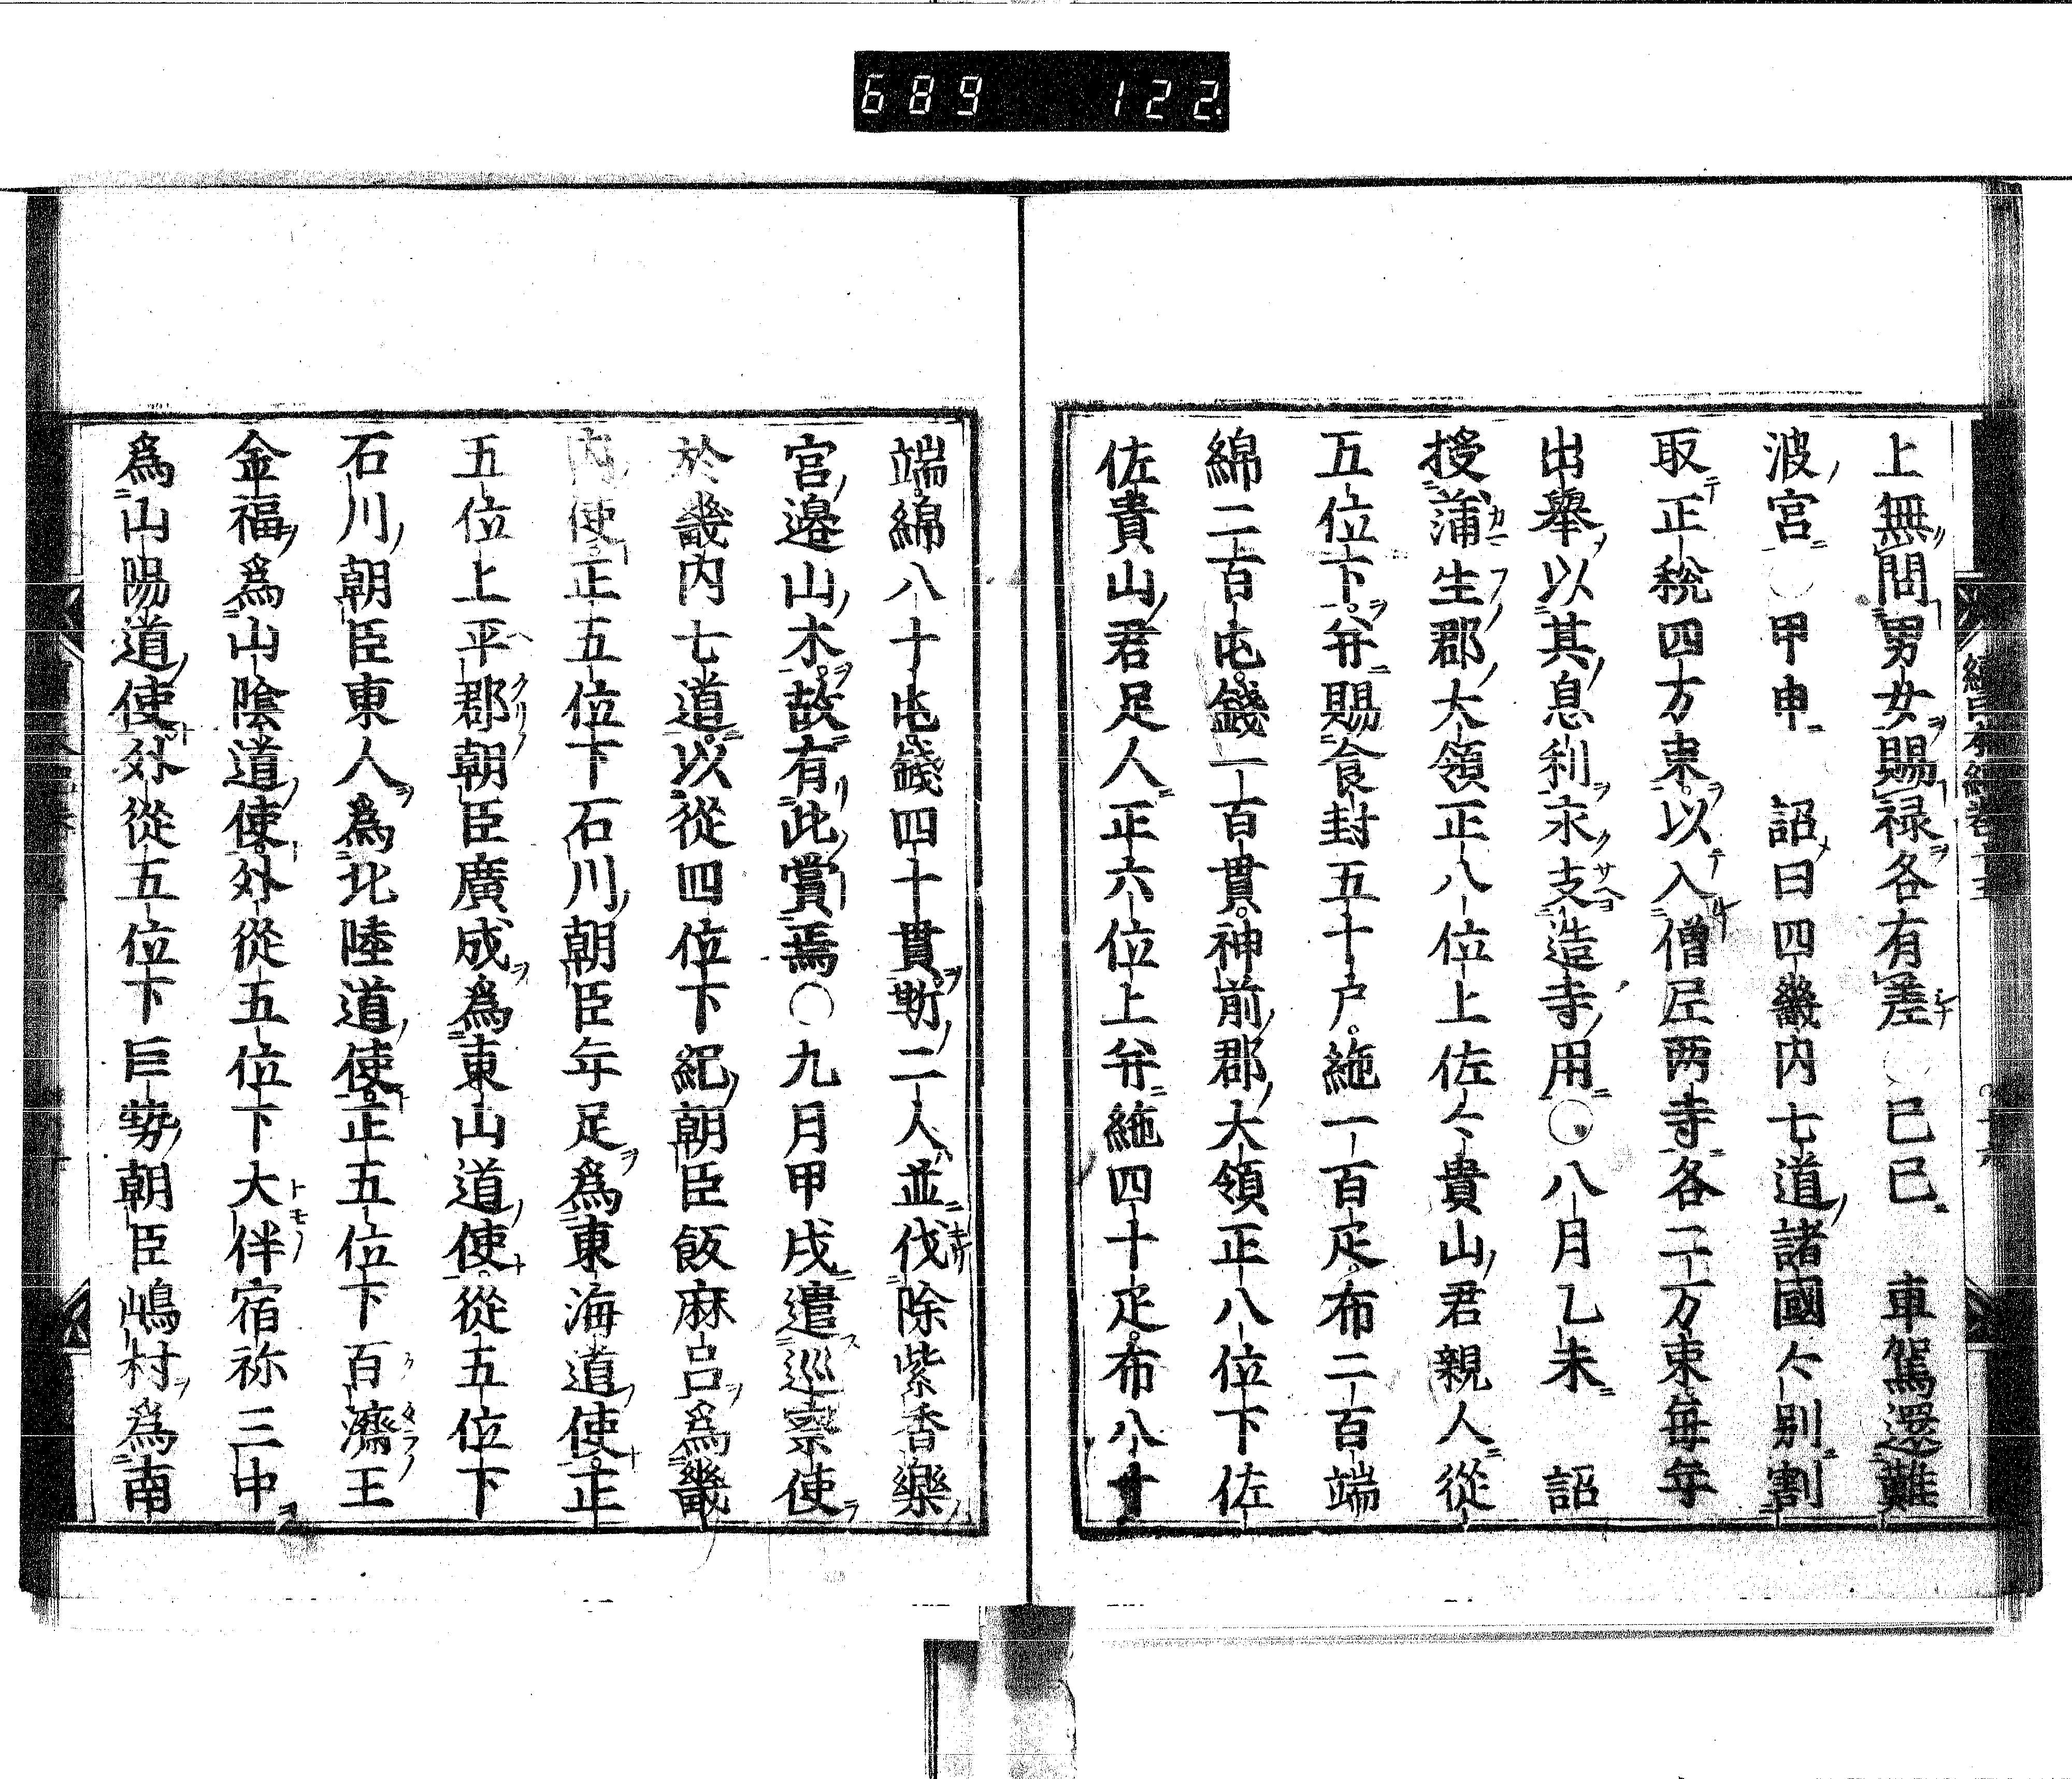 689 122
上無問男女賜禄各有差○己巳 車駕還難
波宮○甲申 詔曰四畿内七道諸國々別割
取正税四万束以入僧尼两寺各二万束毎年
出舉以其息利永支造寺用○八月乙未 詔
授蒲生郡大領正八位上佐々貴山君親人従
五位下并賜食封五十戸絁一百疋布二百端
綿二百屯錢一百貫神前郡大領正八位下佐
佐貴山君足人正六位上并絁四十疋布八十
端綿八十屯錢四十貫斯二人並伐除紫香樂
宮邊山木故有此賞焉○九月甲戌遣巡察使
於畿内七道以從四位下紀朝臣飯麻呂爲畿
内使正五位下石川朝臣年足爲東海道使正
五位上平郡朝臣廣成爲東山道使從五位下
石川朝臣東人爲北陸道使正五位下百濟王
金福爲山陰道使外從五位下大伴宿祢三中
爲山陽道使外從五位下巨勢朝臣嶋村爲南